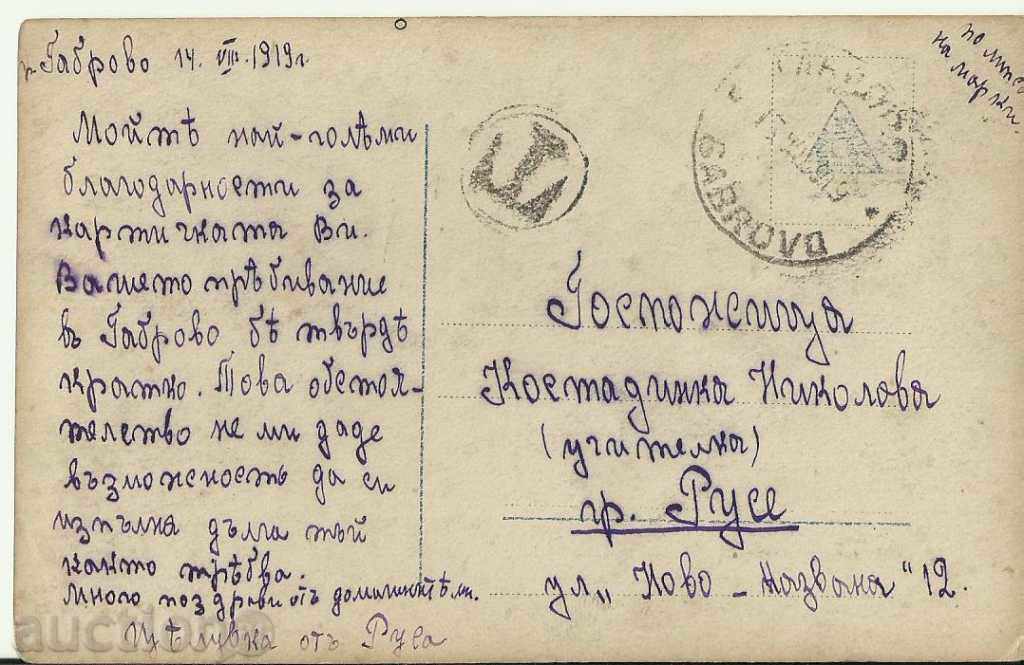 Габрово 14. VIII. 1919 г.
Мойтѣ най-голѣми
благодарности за
картичката Ви.
Вашето прѣбивание
въ Габрово бѣ твърдѣ
кратко. Това обстоя-
телство не ми даде
възможность да си
изпълна дълга тъй
както трѣбва.
Много поздрави отъ домашнитѣ ми.
Цѣлувка отъ Руса
на марки.
T
GABROVO
Госпожица
Костадинка Николова
(учителка)
гр. Русе
ул. „Ново-Названа" 12.